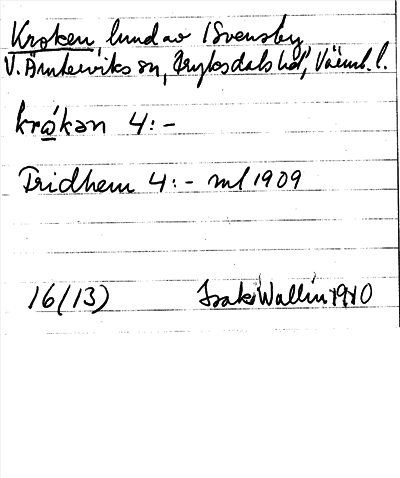 Kroken, lund av 1 Svensby,
V. Ämterviks sn, Fryksdals hd, Värml. l.
krokən 4:-
Fridhem 4:- ml 1909
16/13) Isak Wallin 1910